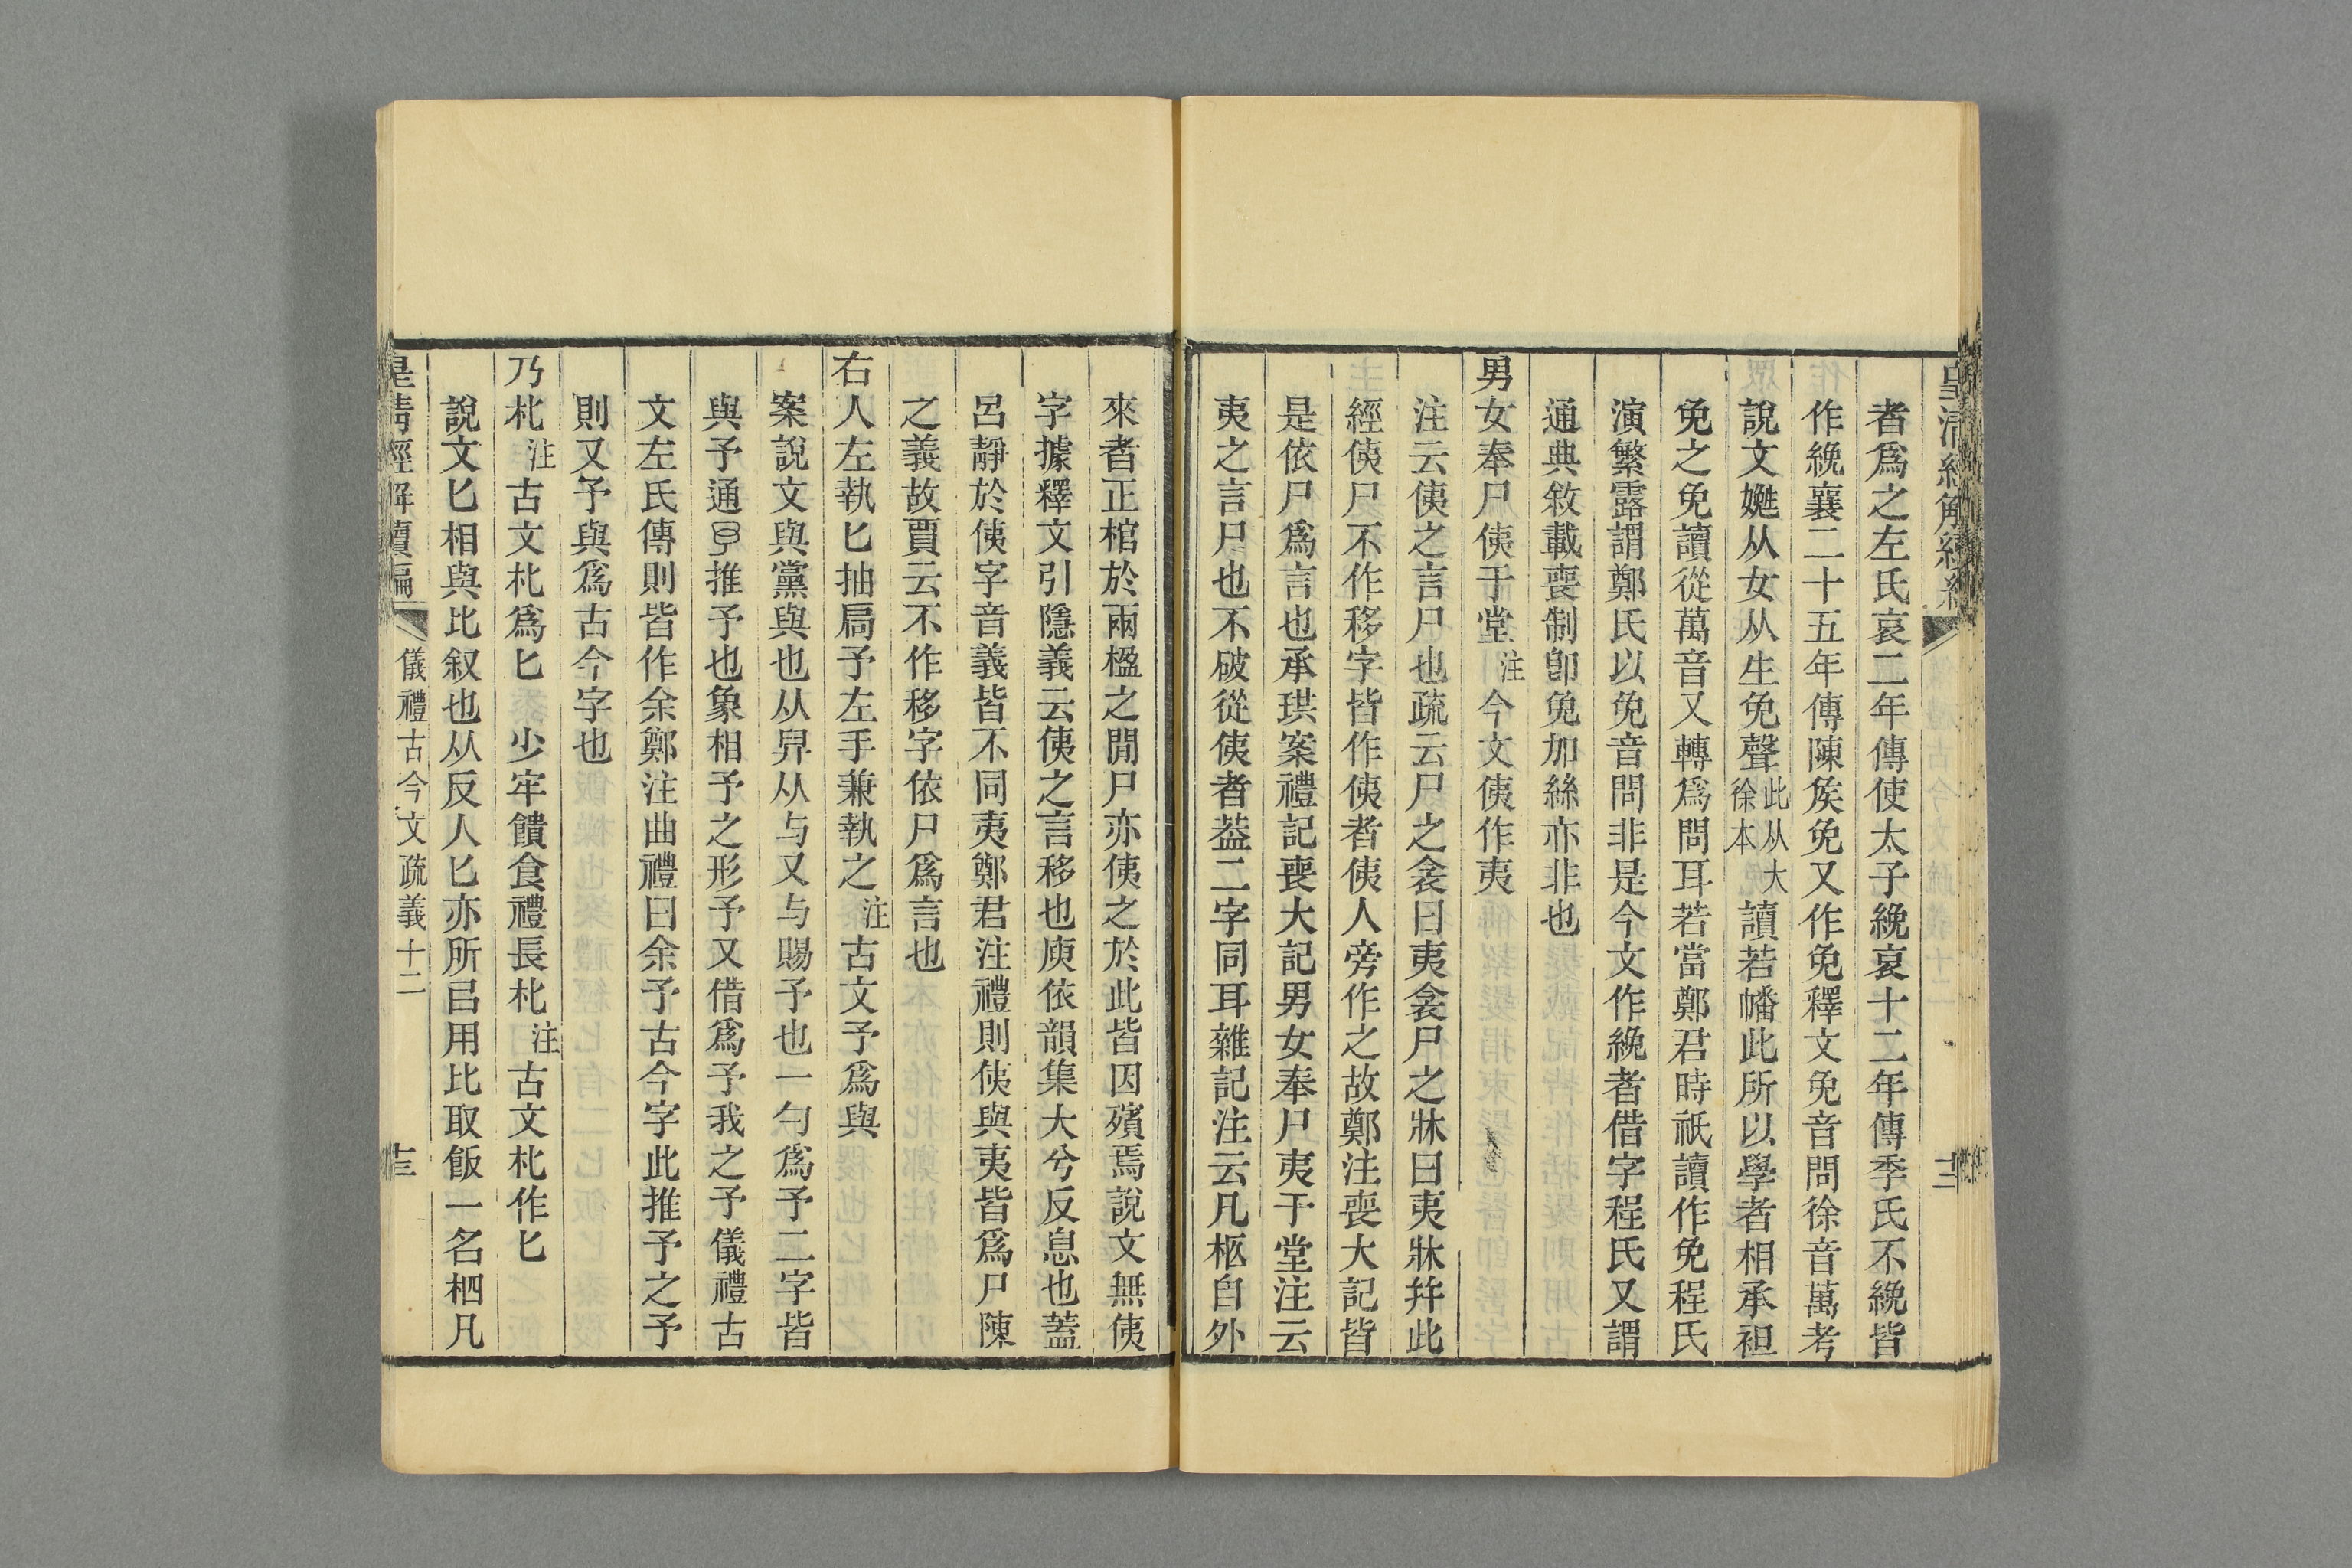 者爲之左氏哀二年傳使太子絻哀十二年傳季氏不絻皆
作絻襄二十五年傳陳矦免又作免釋文免音問徐音萬考
說文㝃从女从生免聲此从大徐本讀若幡此所以學者相承袒
免之免讀從萬音又轉爲問耳若當鄭君時祇讀作免程氏
演繁露謂鄭氏以免音問非是今文作絻者借字程氏又謂
通典敘載喪制卽免加絲亦非也
男女奉尸侇于堂注今文侇作夷
注云侇之言尸也疏云尸之衾曰夷衾尸之牀曰夷牀幷此
經侇尸不作移字皆作侇者侇人旁作之故鄭注喪大記皆
是依尸爲言也承珙案禮記喪大記男女奉尸夷于堂注云
夷之言尸也不破從侇者葢二字同耳雜記注云凡柩自外
來者正棺於兩楹之閒尸亦侇之於此皆因殯焉說文無侇
字據釋文引隱義云侇之言移也庾依韻集大兮反息也蓋
呂靜於侇字音義皆不同夷鄭君注禮則侇與夷皆爲尸陳
之義故賈云不作移字依尸爲言也
右人左執匕抽扃予左手兼執之注古文予爲與
案說文與黨與也从舁从与又与賜予也一勺爲予二字皆
與予通推予也象相予之形予又借爲予我之予儀禮古
文左氏傳則皆作余鄭注曲禮曰余予古今字此推予之予
則又予與爲古今字也
乃朼注古文朼爲匕　少牢饋食禮長朼注古文朼作匕
說文匕相與比叙也从反人匕亦所㠯用比取飯一名柶凡
儀禮古今文疏義十二